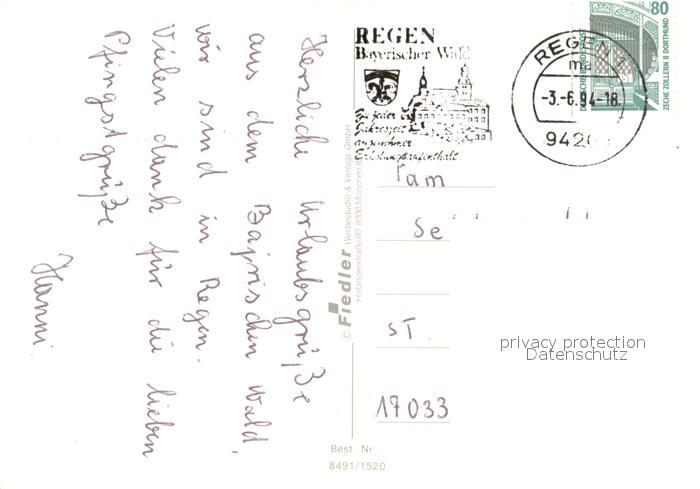 Herzliche Urlaubsgrüße
aus dem Bajrischen Wald,
wir sind in Regen.
Vielen dank für die lieben
Pfingstgrüße
Hanni.
REGEN
Bayerischer Wald
Zu jeder
Jahreszeit
angenehmer
Erholungsaufenthalt
REGEN 1
ma
-3.-6.94-18
9420
80
DEUTSCHE BUNDESPOST
ZECHE ZOLLERN II DORTMUND
Fam
Se
ST.
17033
© Fiedler Werbestudio & Verlags GmbH
Hofangerstraße 80 8000 München
Best. Nr
8491/1520
privacy protection
Datenschutz